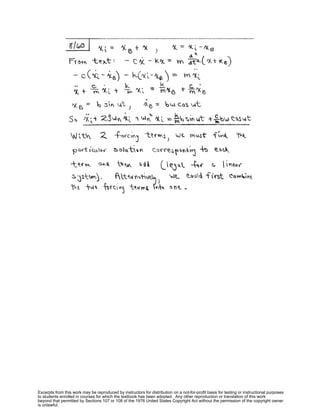 8/60 xᵢ = x_B + x , x = xᵢ - x_B
From text: - cẋ - kx = m d²/dt² (x + x_B)
- c(ẋᵢ - ẋ_B) - k(xᵢ - x_B) = m ẍᵢ
ẍᵢ + c/m ẋᵢ + k/m xᵢ = k/m x_B + c/m ẋ_B
x_B = b sin ωt , ẋ_B = bω cos ωt
So ẍᵢ + 2ζωₙ ẋᵢ + ωₙ² xᵢ = k/m b sin ωt + c/m bω cos ωt
With 2 forcing terms, we must find the
particular solution corresponding to each
term and then add (legal for a linear
system). Alternatively, we could first combine
the two forcing terms into one.
Excerpts from this work may be reproduced by instructors for distribution on a not-for-profit basis for testing or instructional purposes
to students enrolled in courses for which the textbook has been adopted. Any other reproduction or translation of this work
beyond that permitted by Sections 107 or 108 of the 1976 United States Copyright Act without the permission of the copyright owner
is unlawful.